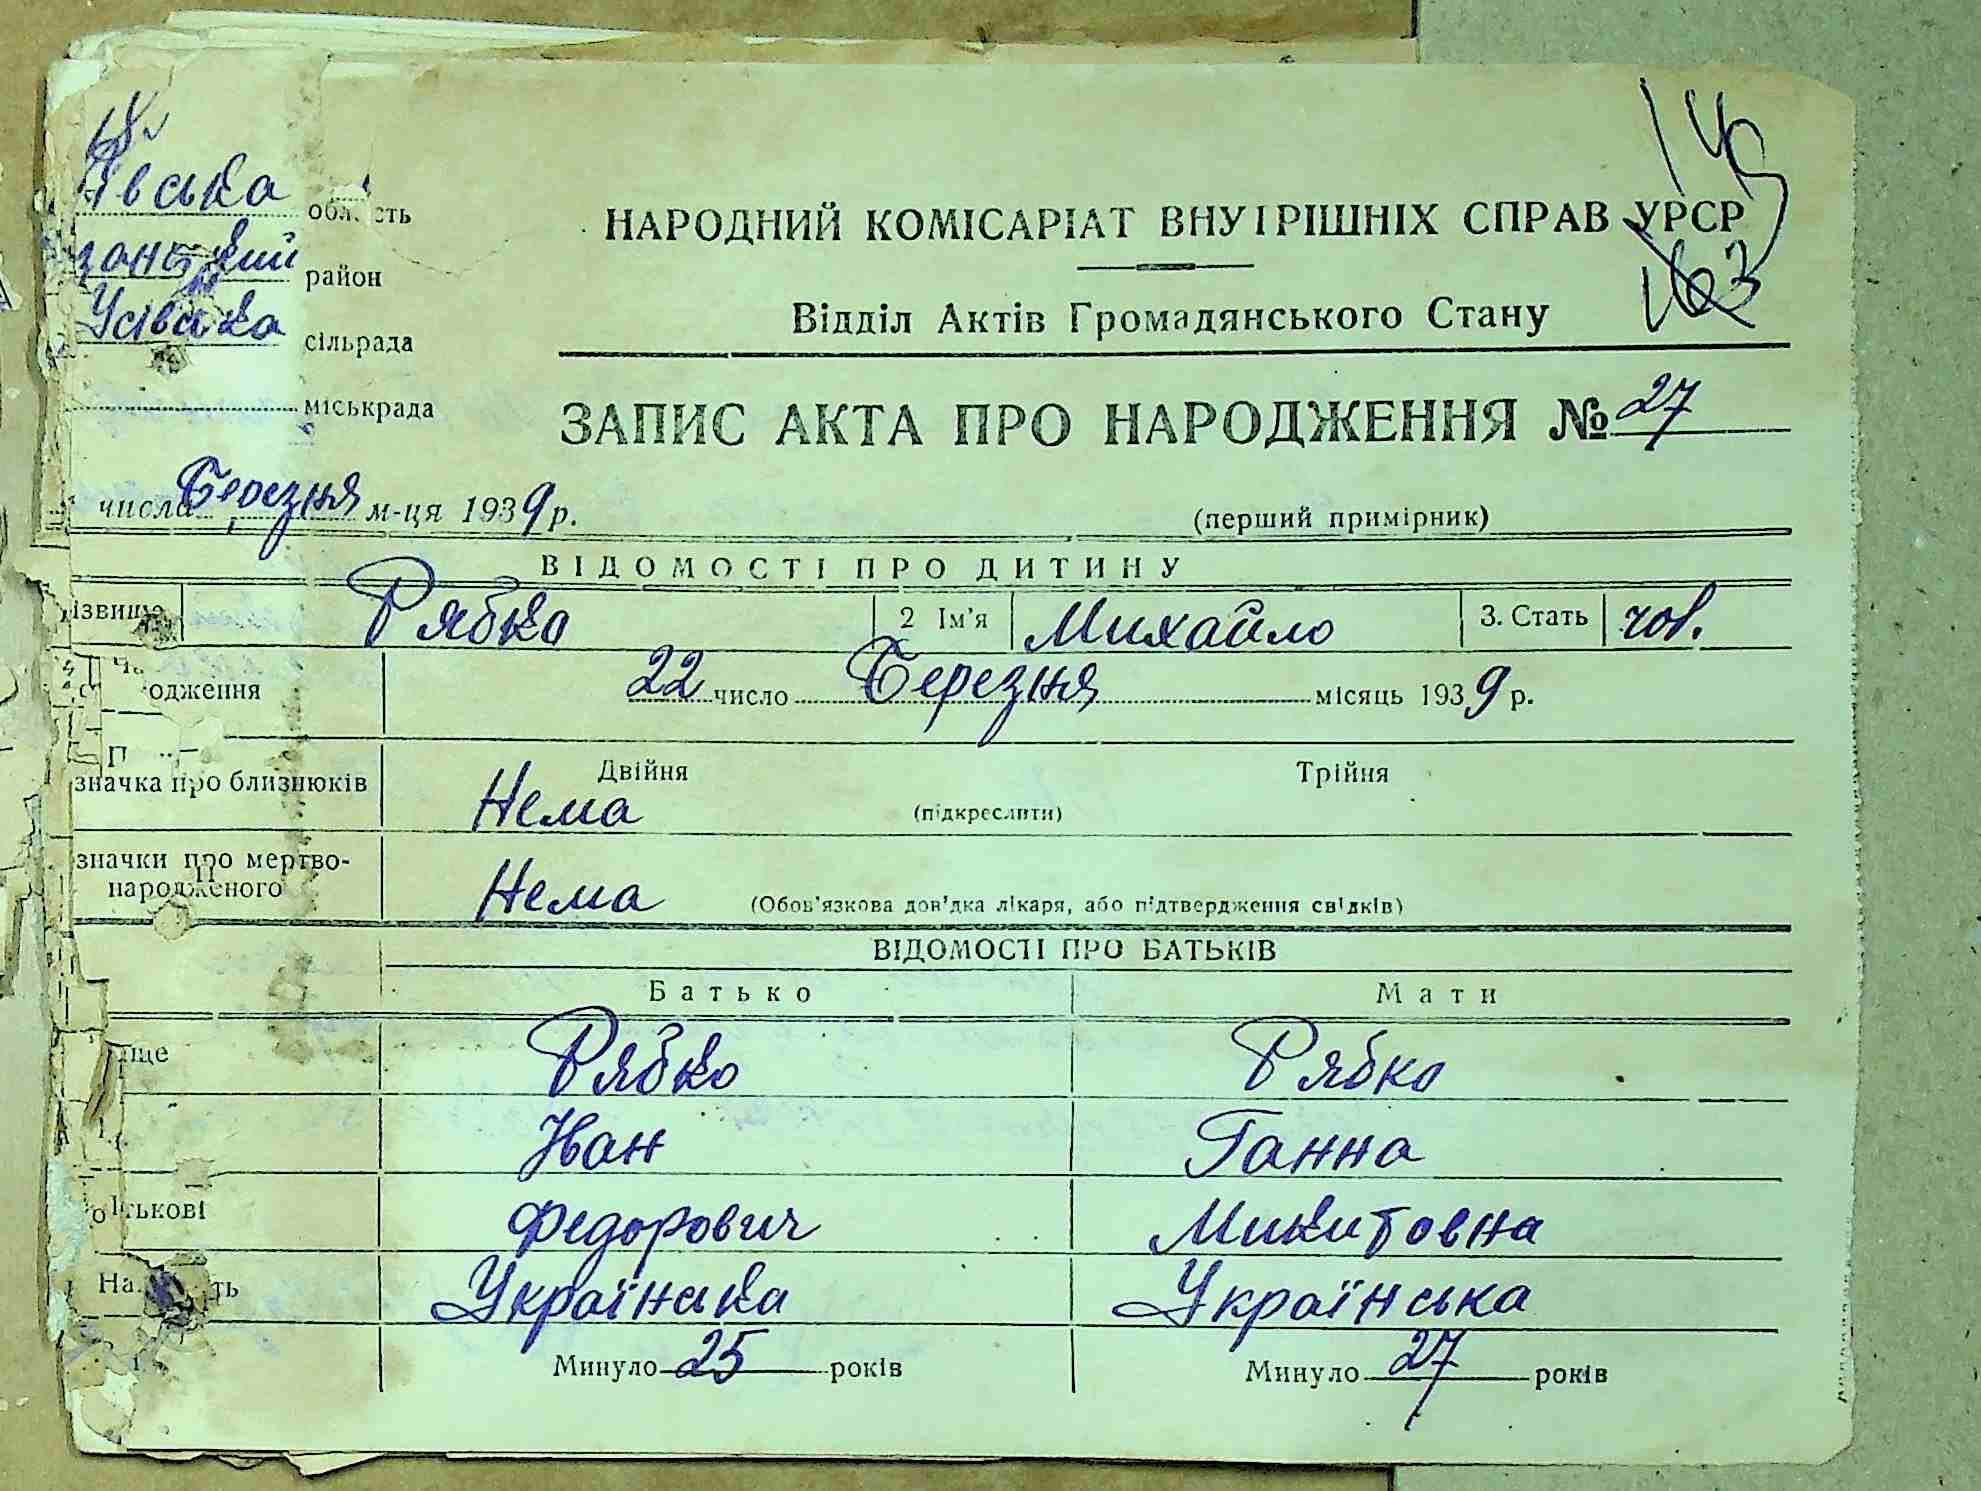 145
163
івська область
занський район
Усівська сільрада
міськрада
НАРОДНИЙ КОМІСАРІАТ ВНУТРІШНІХ СПРАВ УРСР
Відділ Актів Громадянського Стану
ЗАПИС АКТА ПРО НАРОДЖЕННЯ № 27
числа Березня м-ця 1939 р.
(перший примірник)
ВІДОМОСТІ ПРО ДИТИНУ
ізвище Рябко 2 Ім'я Михайло 3. Стать чол.
одження 22 число Березня місяць 1939 р.
значка про близнюків Нема Двійня Трійня
(підкреслити)
значки про мертво-
народженого Нема (Обов'язкова довідка лікаря, або підтвердження свідків)
ВІДОМОСТІ ПРО БАТЬКІВ
Батько Мати
ище Рябко Рябко
Іван Ганна
тькові Федорович Микитовна
На ть Українська Українська
Минуло 25 років Минуло 27 років